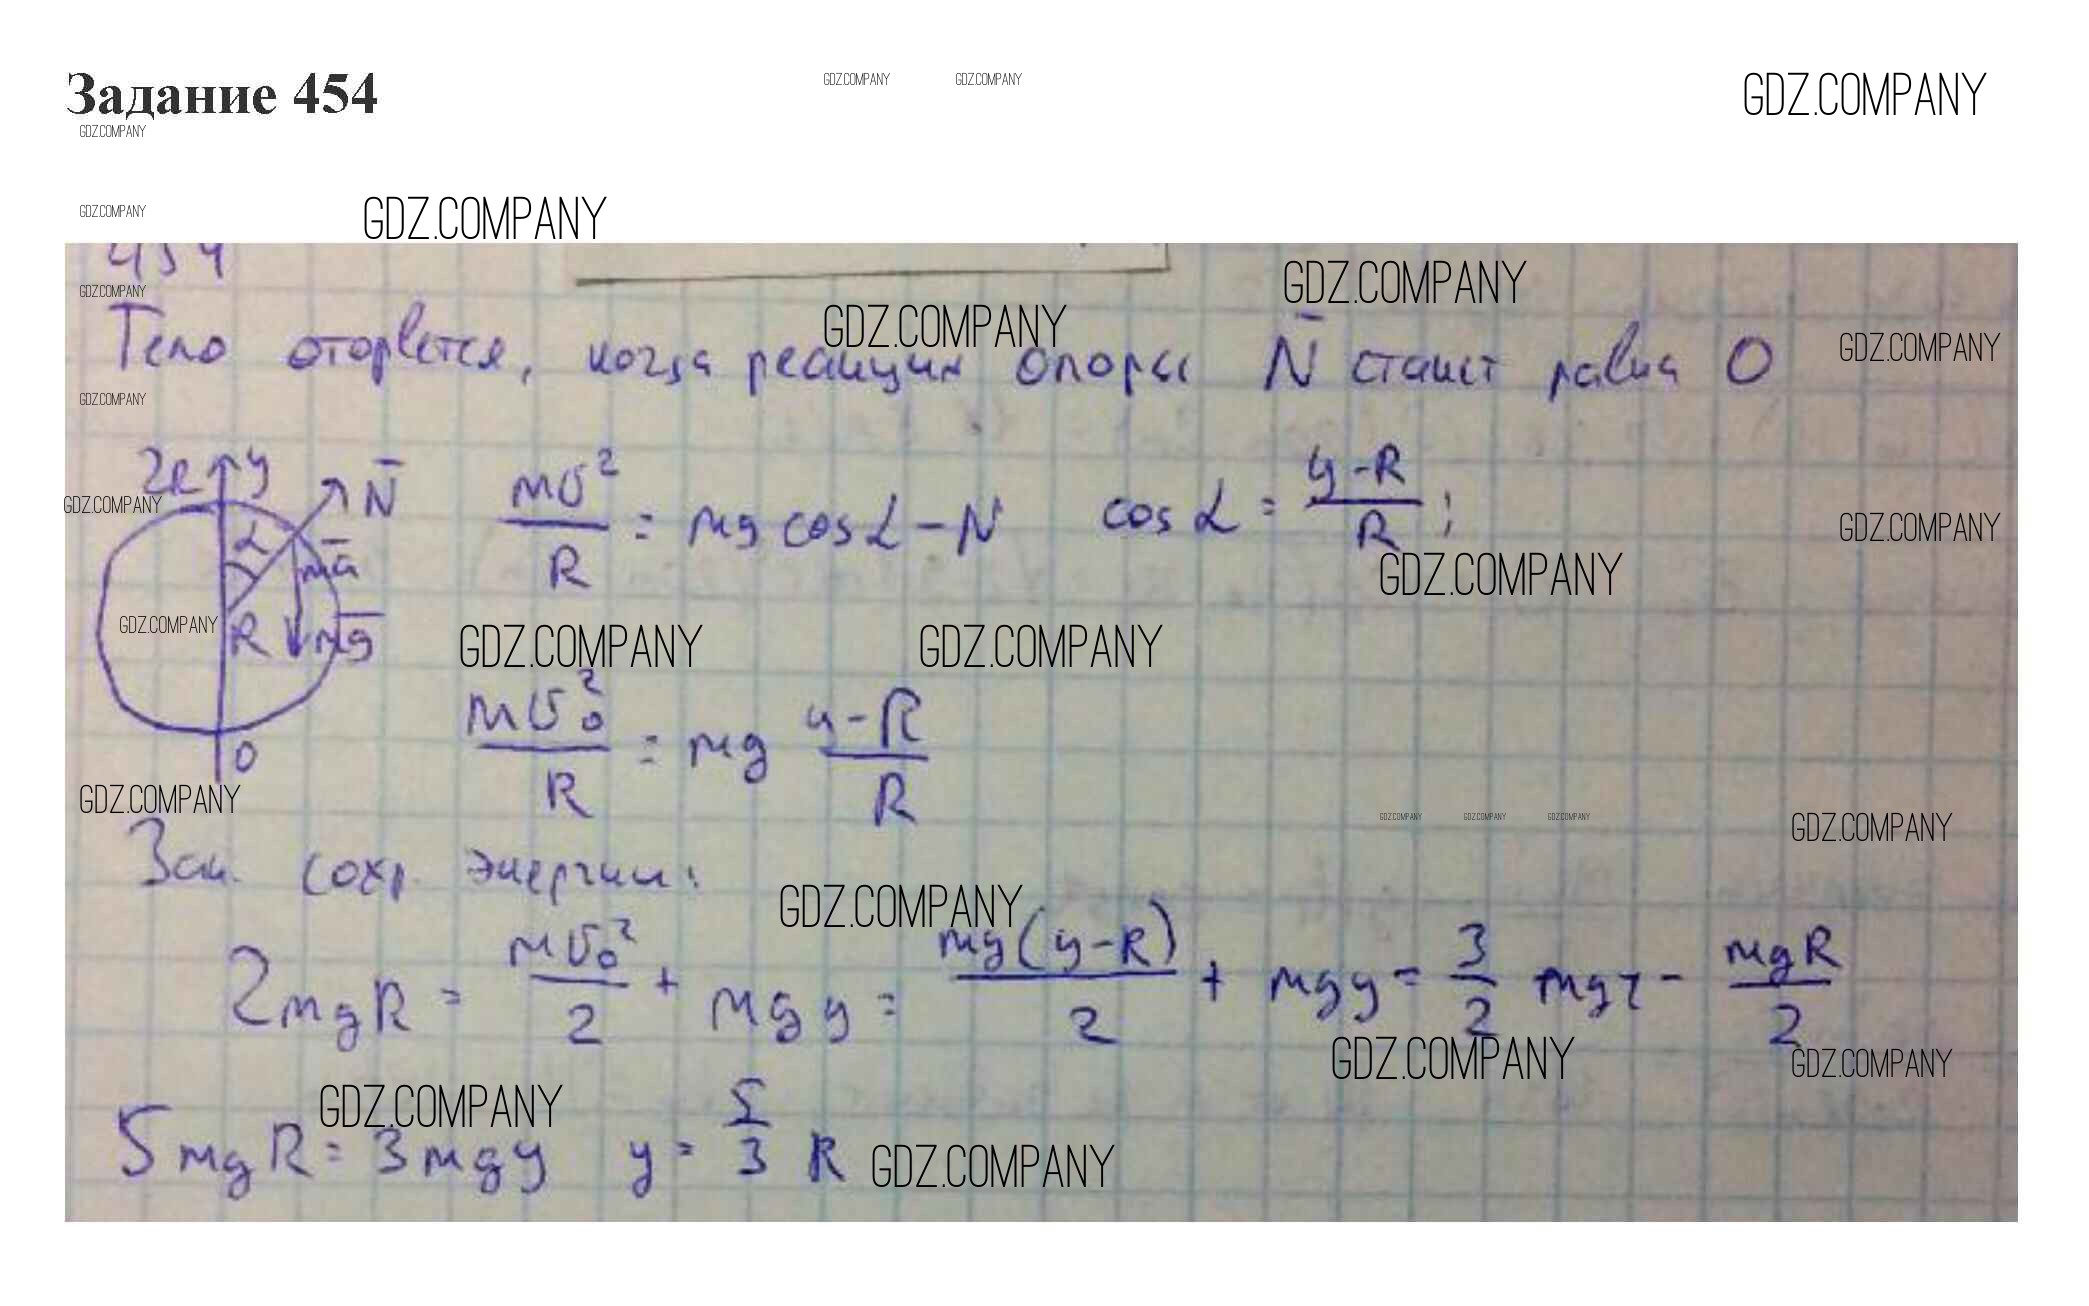 Задание 454
GDZ.COMPANY GDZ.COMPANY
GDZ.COMPANY
GDZ.COMPANY
GDZ.COMPANY
GDZ.COMPANY
454
GDZ.COMPANY
GDZ.COMPANY
GDZ.COMPANY
Тело оторвется, когда реакция опоры N̄ станет равна 0
GDZ.COMPANY
GDZ.COMPANY
2R y N̄
mv²/R = mg cos α - N cos α = (y-R)/R ;
GDZ.COMPANY
GDZ.COMPANY
α mā
GDZ.COMPANY
GDZ.COMPANY
R mḡ
GDZ.COMPANY
GDZ.COMPANY
mv₀²/R = mg (y-R)/R
0
GDZ.COMPANY
GDZ.COMPANY GDZ.COMPANY GDZ.COMPANY
GDZ.COMPANY
Зак. сохр. энергии:
GDZ.COMPANY
2mgR = mv₀²/2 + mgy = mg(y-R)/2 + mgy = 3/2 mgy - mgR/2
GDZ.COMPANY
GDZ.COMPANY
GDZ.COMPANY
5mgR = 3mgy y = 5/3 R
GDZ.COMPANY